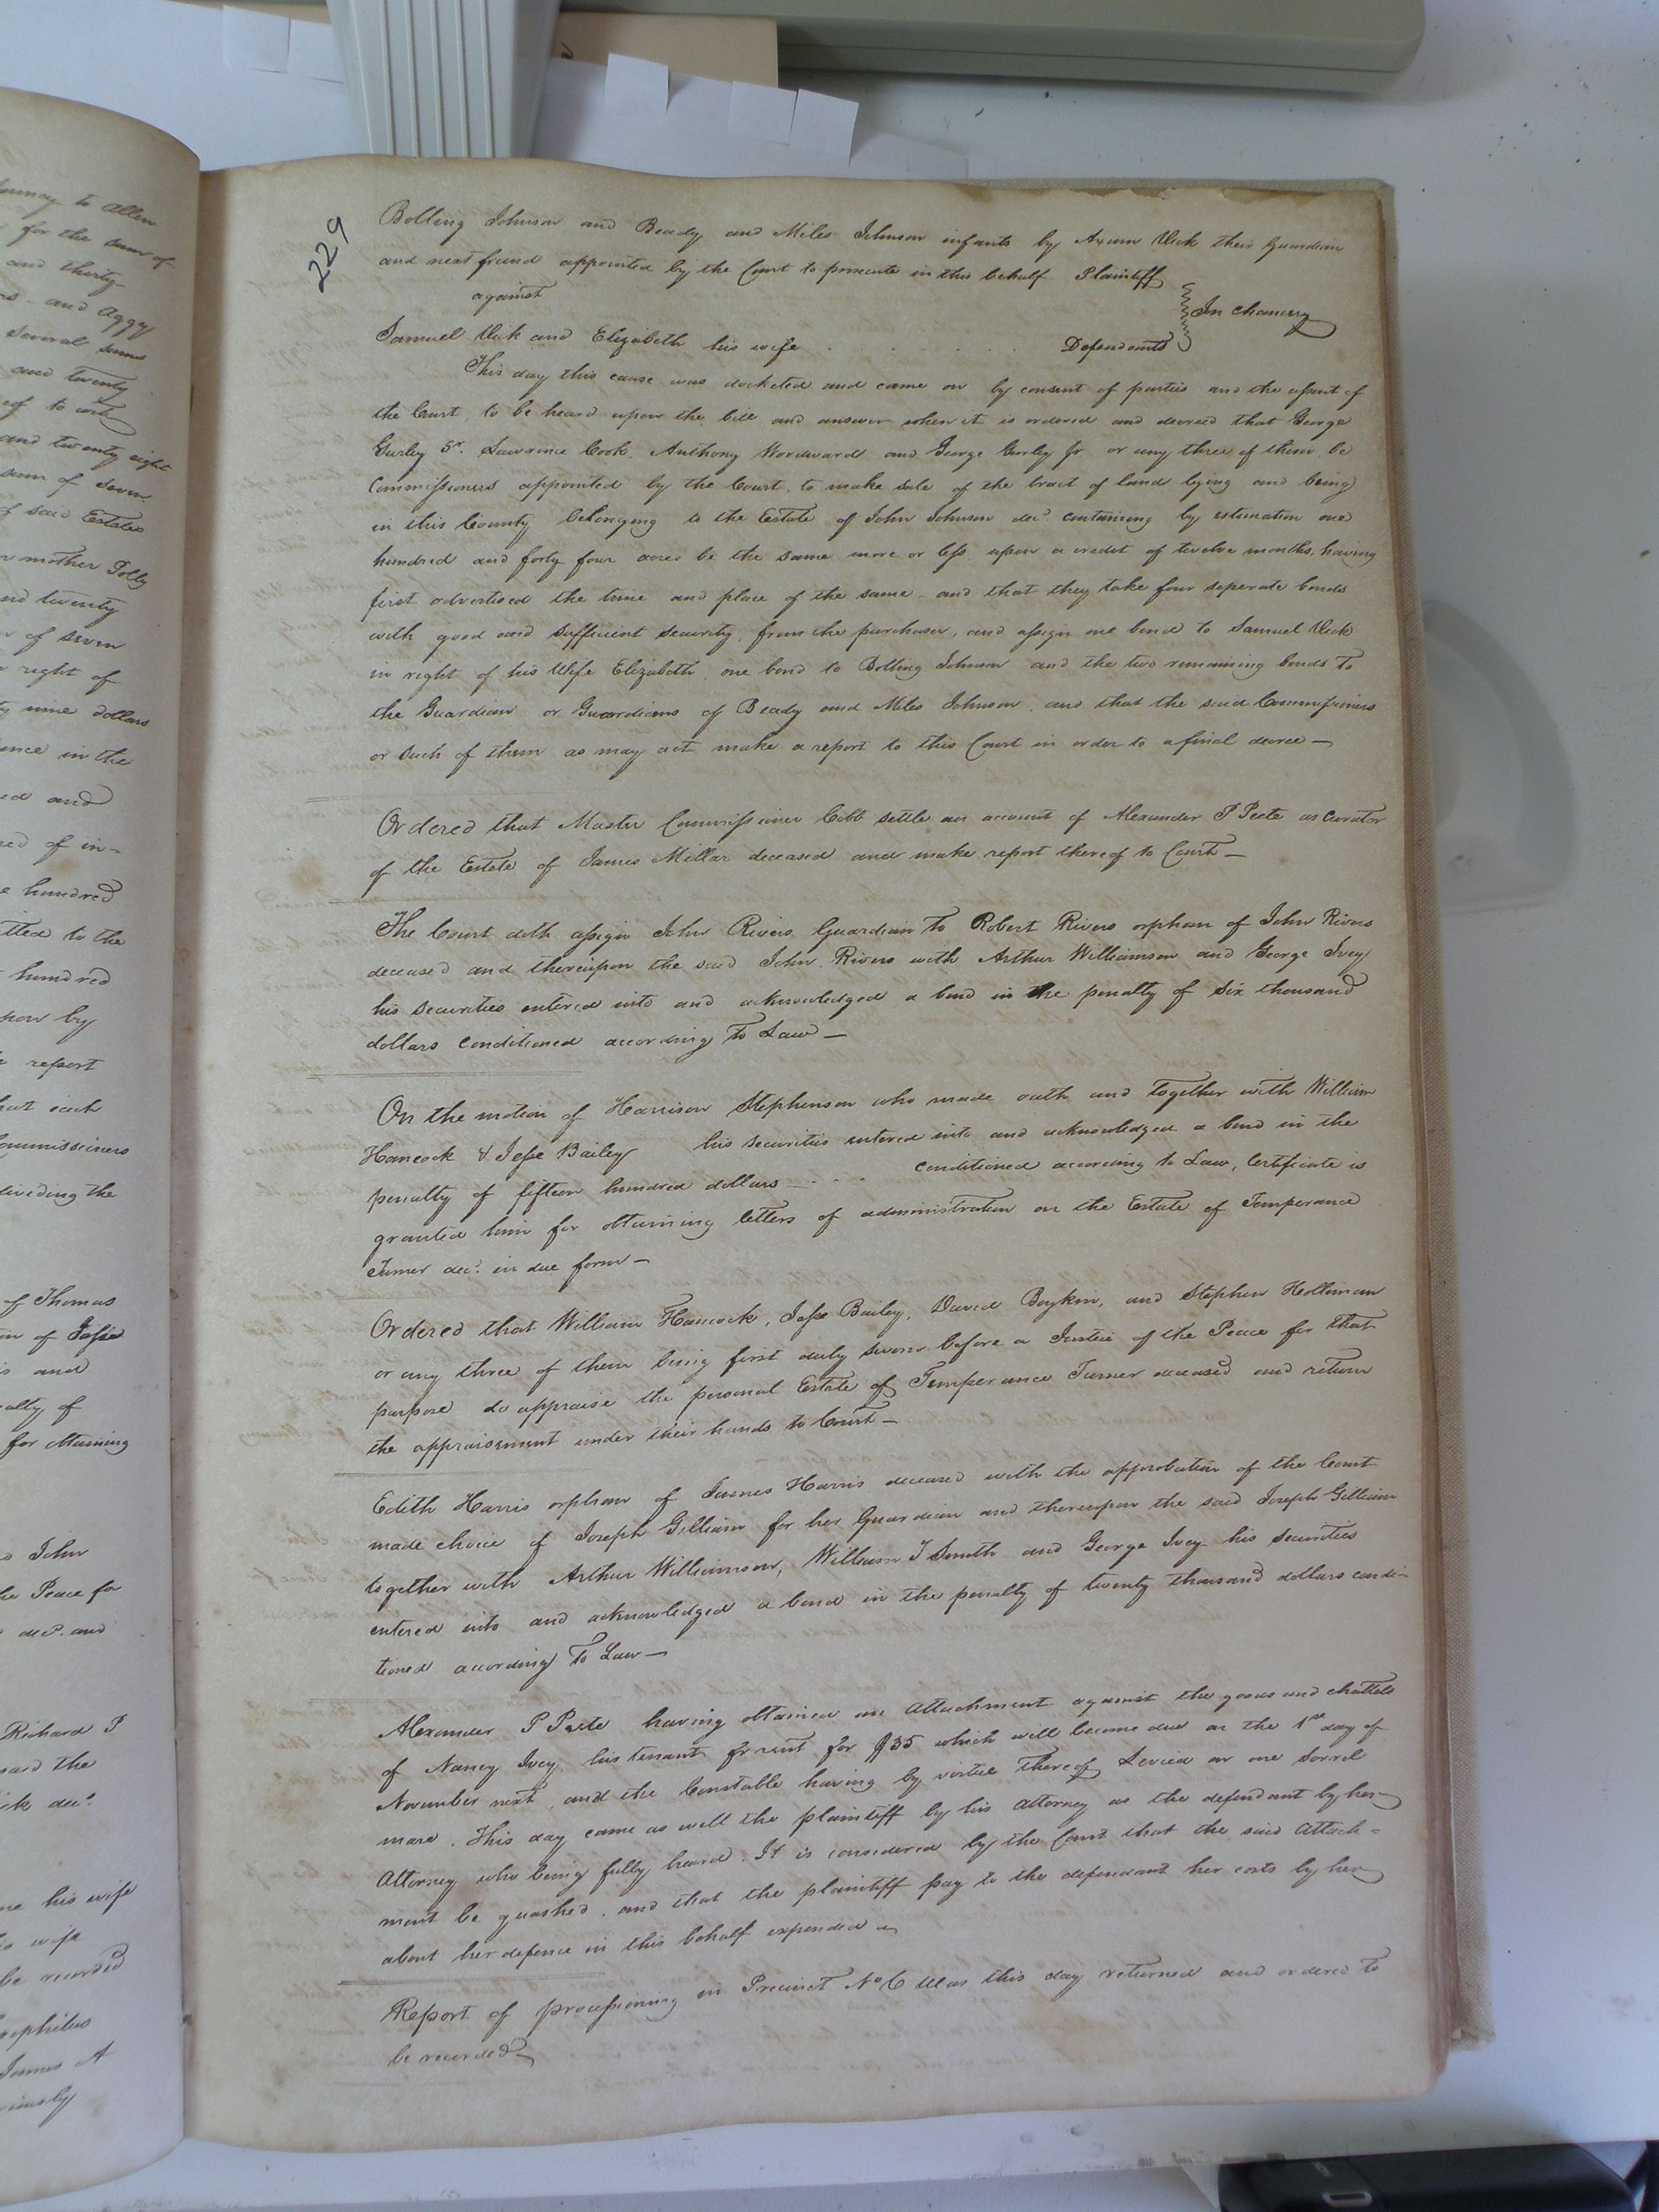 229
Bolling Johnson and Beady and Miles Johnson infants by Axum Vick their Guardian
and next freind appointed by the Court to prosecute in this behalf Plaintiff
against
In chancery
Samuel Vick and Elizabeth his wife . . . . . Defendants
This day this cause was docketed and came on by consent of parties and the assent of
the Court, to be heard upon the bill and answer when it is ordered and decreed that George
Gurley Sr. Lawrence Cook, Anthony Woodward and George Gurley Jr. or any three of them, be
Commissioners appointed by the Court, to make sale of the tract of land lying and being
in this County belonging to the Estate of John Johnson decd. containing by estimation one
hundred and forty four acres be the same more or less upon a credit of twelve months, having
first advertised the time and place of the same - and that they take four seperate bonds
with good and sufficient security, from the purchaser, and assign one bond to Samuel Vick
in right of his Wife Elizabeth, one bond to Bolling Johnson and the two remaining bonds to
the Guardian or Guardians of Beady and Miles Johnson, and that the said Commissioners
or such of them as may act make a report to this Court in order to a final decree —
Ordered that Master Commissioner Cobb settle an account of Alexander P Peete as Curator
of the Estate of James Millar deceased and make report thereof to Court —
The Court doth assign John Rivers Guardian to Robert Rivers orphan of John Rivers
deceased and thereupon the said John Rivers with Arthur Williamson and George Ivey
his securities entered into and acknowledged a bond in the penalty of six thousand
dollars conditioned according to Law —
On the motion of Harrison Stephenson who made oath and together with William
Hancock & Jesse Bailey his securities entered into and acknowledged a bond in the
penalty of fifteen hundred dollars — . . . conditioned according to Law, Certificate is
granted him for obtaining letters of administration on the Estate of Temperance
Turner decd. in due form —
Ordered that William Hancock, Jesse Bailey, David Boykin, and Stephen Holliman
or any three of them being first duly sworn before a Justice of the Peace for that
purpose do appraise the personal Estate of Temperance Turner deceased and return
the appraisement under their hands to Court —
Edith Harris orphan of James Harris deceased with the approbation of the Court
made choice of Joseph Gilliam for her Guardian and thereupon the said Joseph Gilliam
together with Arthur Williamson, William J Smith and George Ivey his securities
entered into and acknowledged a bond in the penalty of twenty thousand dollars condi-
tioned according to Law —
Alexander P Peete having obtained an Attachment against the goods and chattels
of Nancy Ivey his tenant for rent for $35 which will become due on the 1st day of
November next, and the Constable having by virtue thereof Levied on one Sorrel
mare. This day came as well the plaintiff by his Attorney as the defendant by her
Attorney who being fully heard. It is considered by the Court that the said Attach-
ment be quashed. and that the plaintiff pay to the defendant her costs by her
about her defence in this behalf expended &
Report of processioning in Precinct No 6 Was this day returned and ordered to
be recorded —